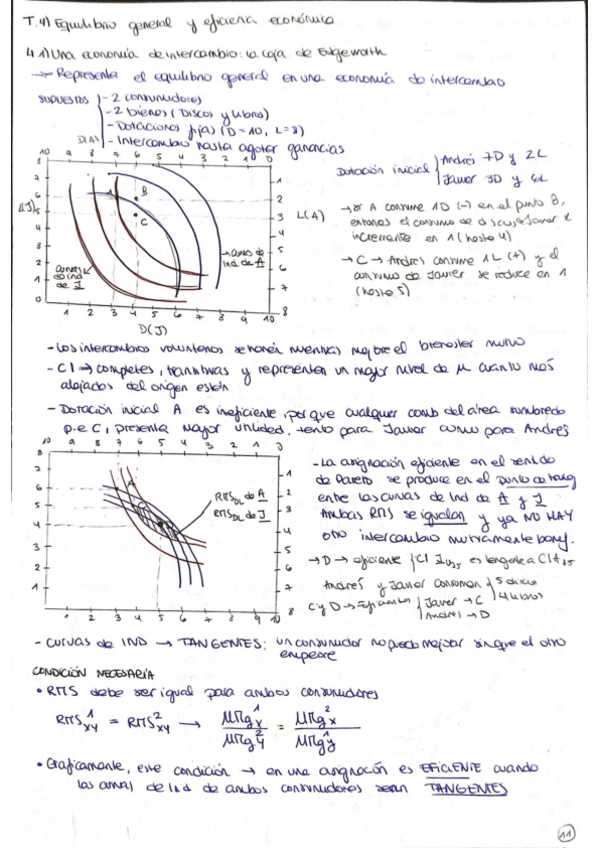 T.4) Equilibrio general y eficiencia económica
4.1) Una economía de intercambio: la caja de Edgeworth
→ Representa el equilibrio general en una economía de intercambio
SUPUESTOS - 2 consumidores
- 2 bienes (Discos y libros)
- Dotaciones fijas (D=10, L=8)
- Intercambio hasta agotar ganancias
D(A)
10 9 8 7 6 5 4 3 2 1 0
Dotación inicial Andrés 7D y 2L
Javier 3D y 6L
L(J)
L(A)
B
C
→ si A consume 1D (-) en el punto B,
entonces el consumo de discos de Javier se
incremente en 1 (hasta 4)
→ C → Andrés consume 1L (+) y el
consumo de Javier se reduce en 1
(hasta 5)
curvas de
ind de A
curvas
de ind
de J
1 2 3 4 5 6 7 8 9 10
D(J)
- Los intercambios voluntarios se harán mientras mejore el bienestar mutuo
- CI → completas, transitivas y representan un mayor nivel de μ cuanto más
alejados del origen estén
- Dotación inicial A es ineficiente, porque cualquier comb del área sombreada
p.e C, presenta mayor utilidad, tanto para Javier como para Andrés
A
RMS DL de A
RMS DL de J
- La asignación eficiente en el sentido
de Pareto se produce en el punto de tang
entre las curvas de Ind de A y J
Ambas RMS se igualan y ya NO HAY
otro intercambio mutuamente benef.
→ D → eficiente
es tangente a CI
Andrés y Javier consumen 5 discos
4 libros
C y D → Eficientes Javier → C
Andrés → D
- Curvas de IND → TANGENTES: un consumidor no puede mejorar sin que el otro
empeore
CONDICIÓN NECESARIA
• RMS debe ser igual para ambos consumidores
RMS¹xy = RMS²xy → UMg¹x / UMg²y = UMg²x / UMg¹y
• Graficamente, esta condición → en una asignación es EFICIENTE cuando
las curvas de Ind de ambos consumidores sean TANGENTES
11